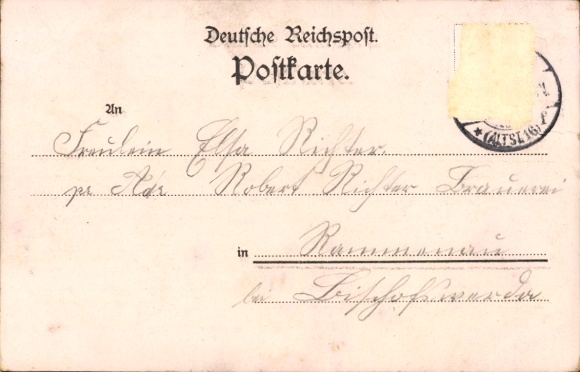 Deutsche Reichspost.
Postkarte.
An
Fräulein Elsa Richter
pr Adr Robert Richter Brauerei
in Rammenau
bei Bischofswerda
* (ALTST.16)